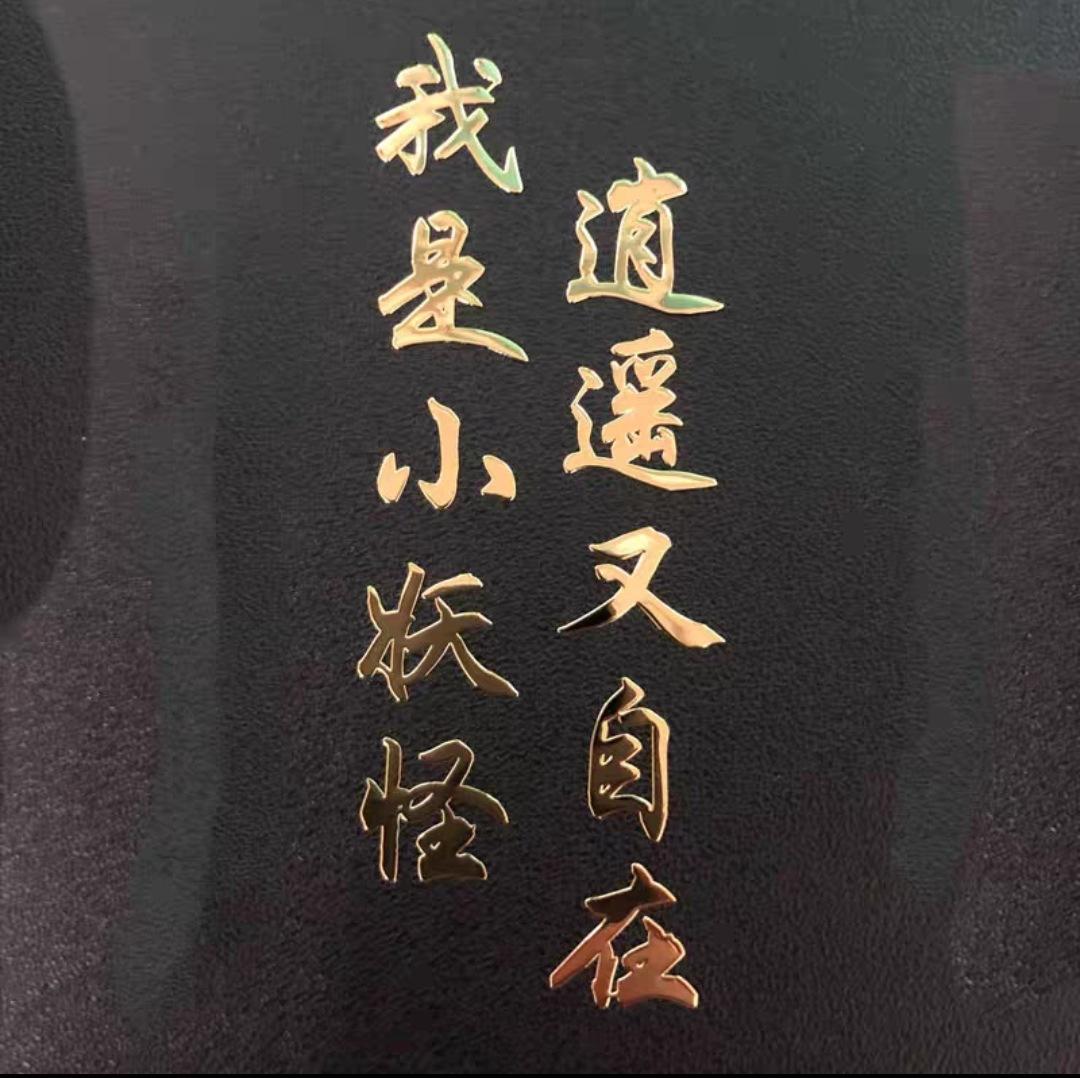 我是小妖怪
逍遥又自在